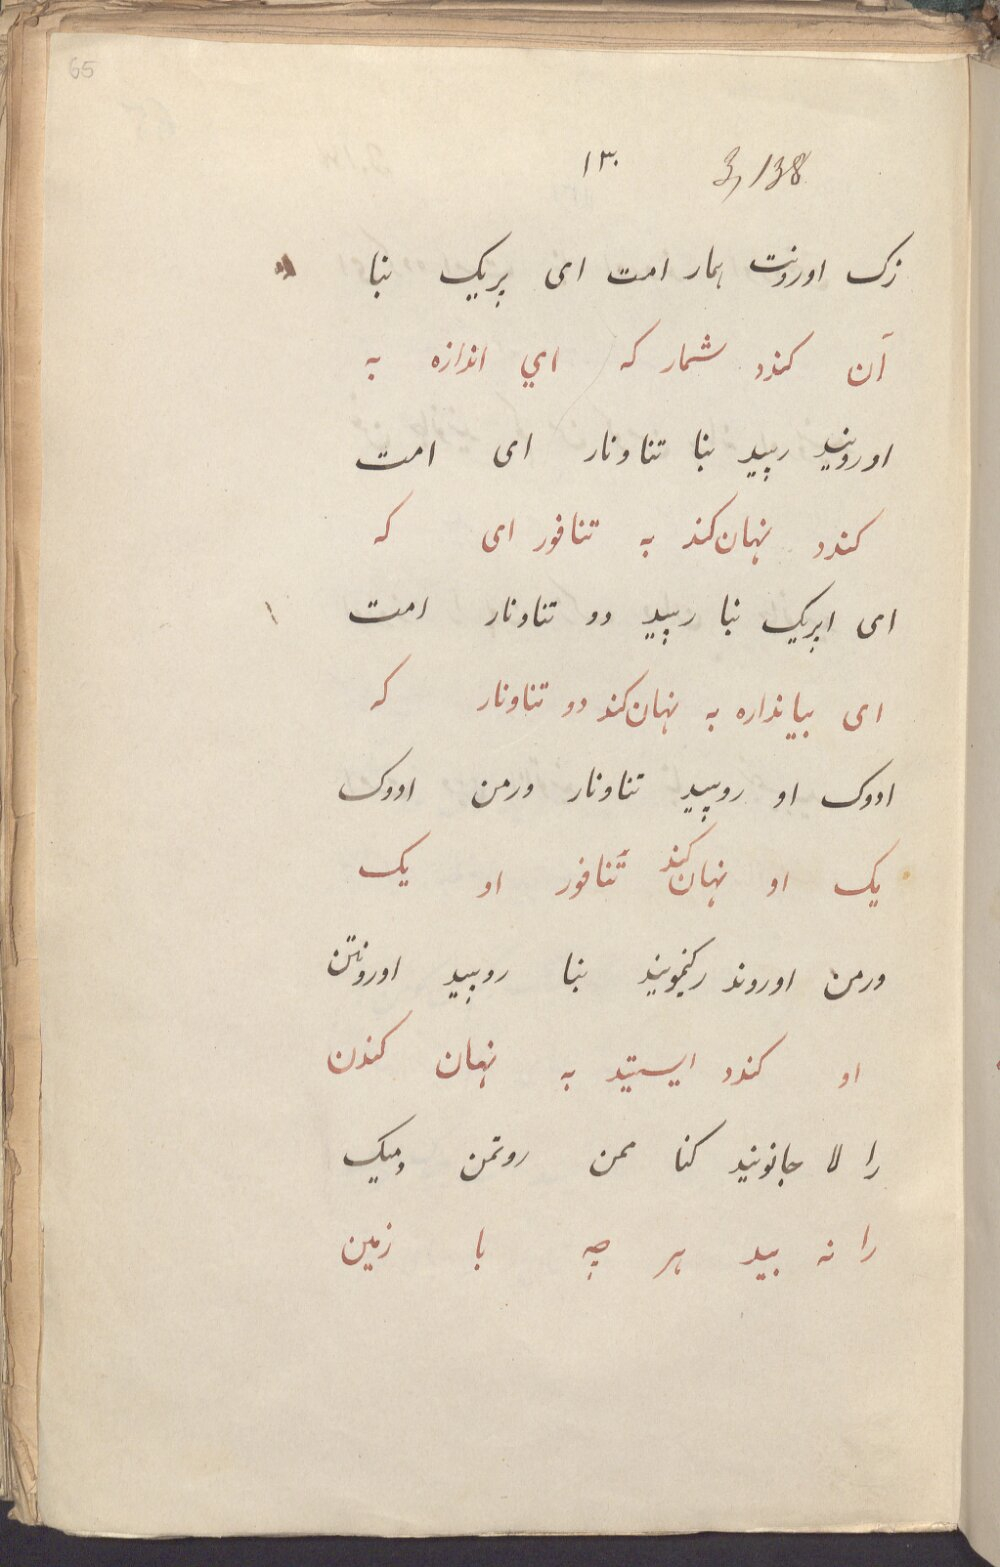 65
3,138 ۱۳۰
زک اورونت همار امت ای پریک بنا
آن کندد شمار که اي اندازه به
اورویند رپید بنا تناونار ای امت
کندد نهان‌کند به تنافور ای که
ای اپریک بنا رپید دو تناونار امت
ای بیاندازه به نهان‌کند دو تناونار که
ادوک او روپید تناونار ورمن ادوک
یک او نهان‌کند تنافور او یک
ورمن اوروند بنا روپید اورونتن
او کندد ایستید به نهان کندن
را لا جانونید کنا ممن روتمن
را نه بید هر چه با زمین